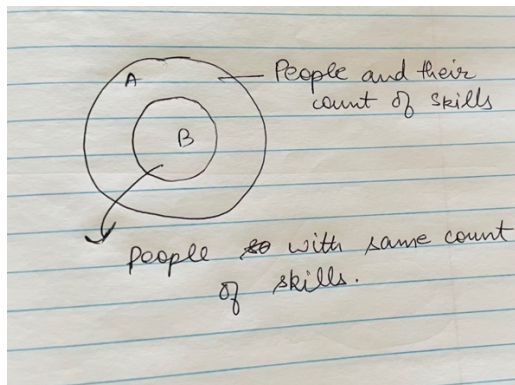 A
People and their
count of skills
B
People so with same count
of skills.